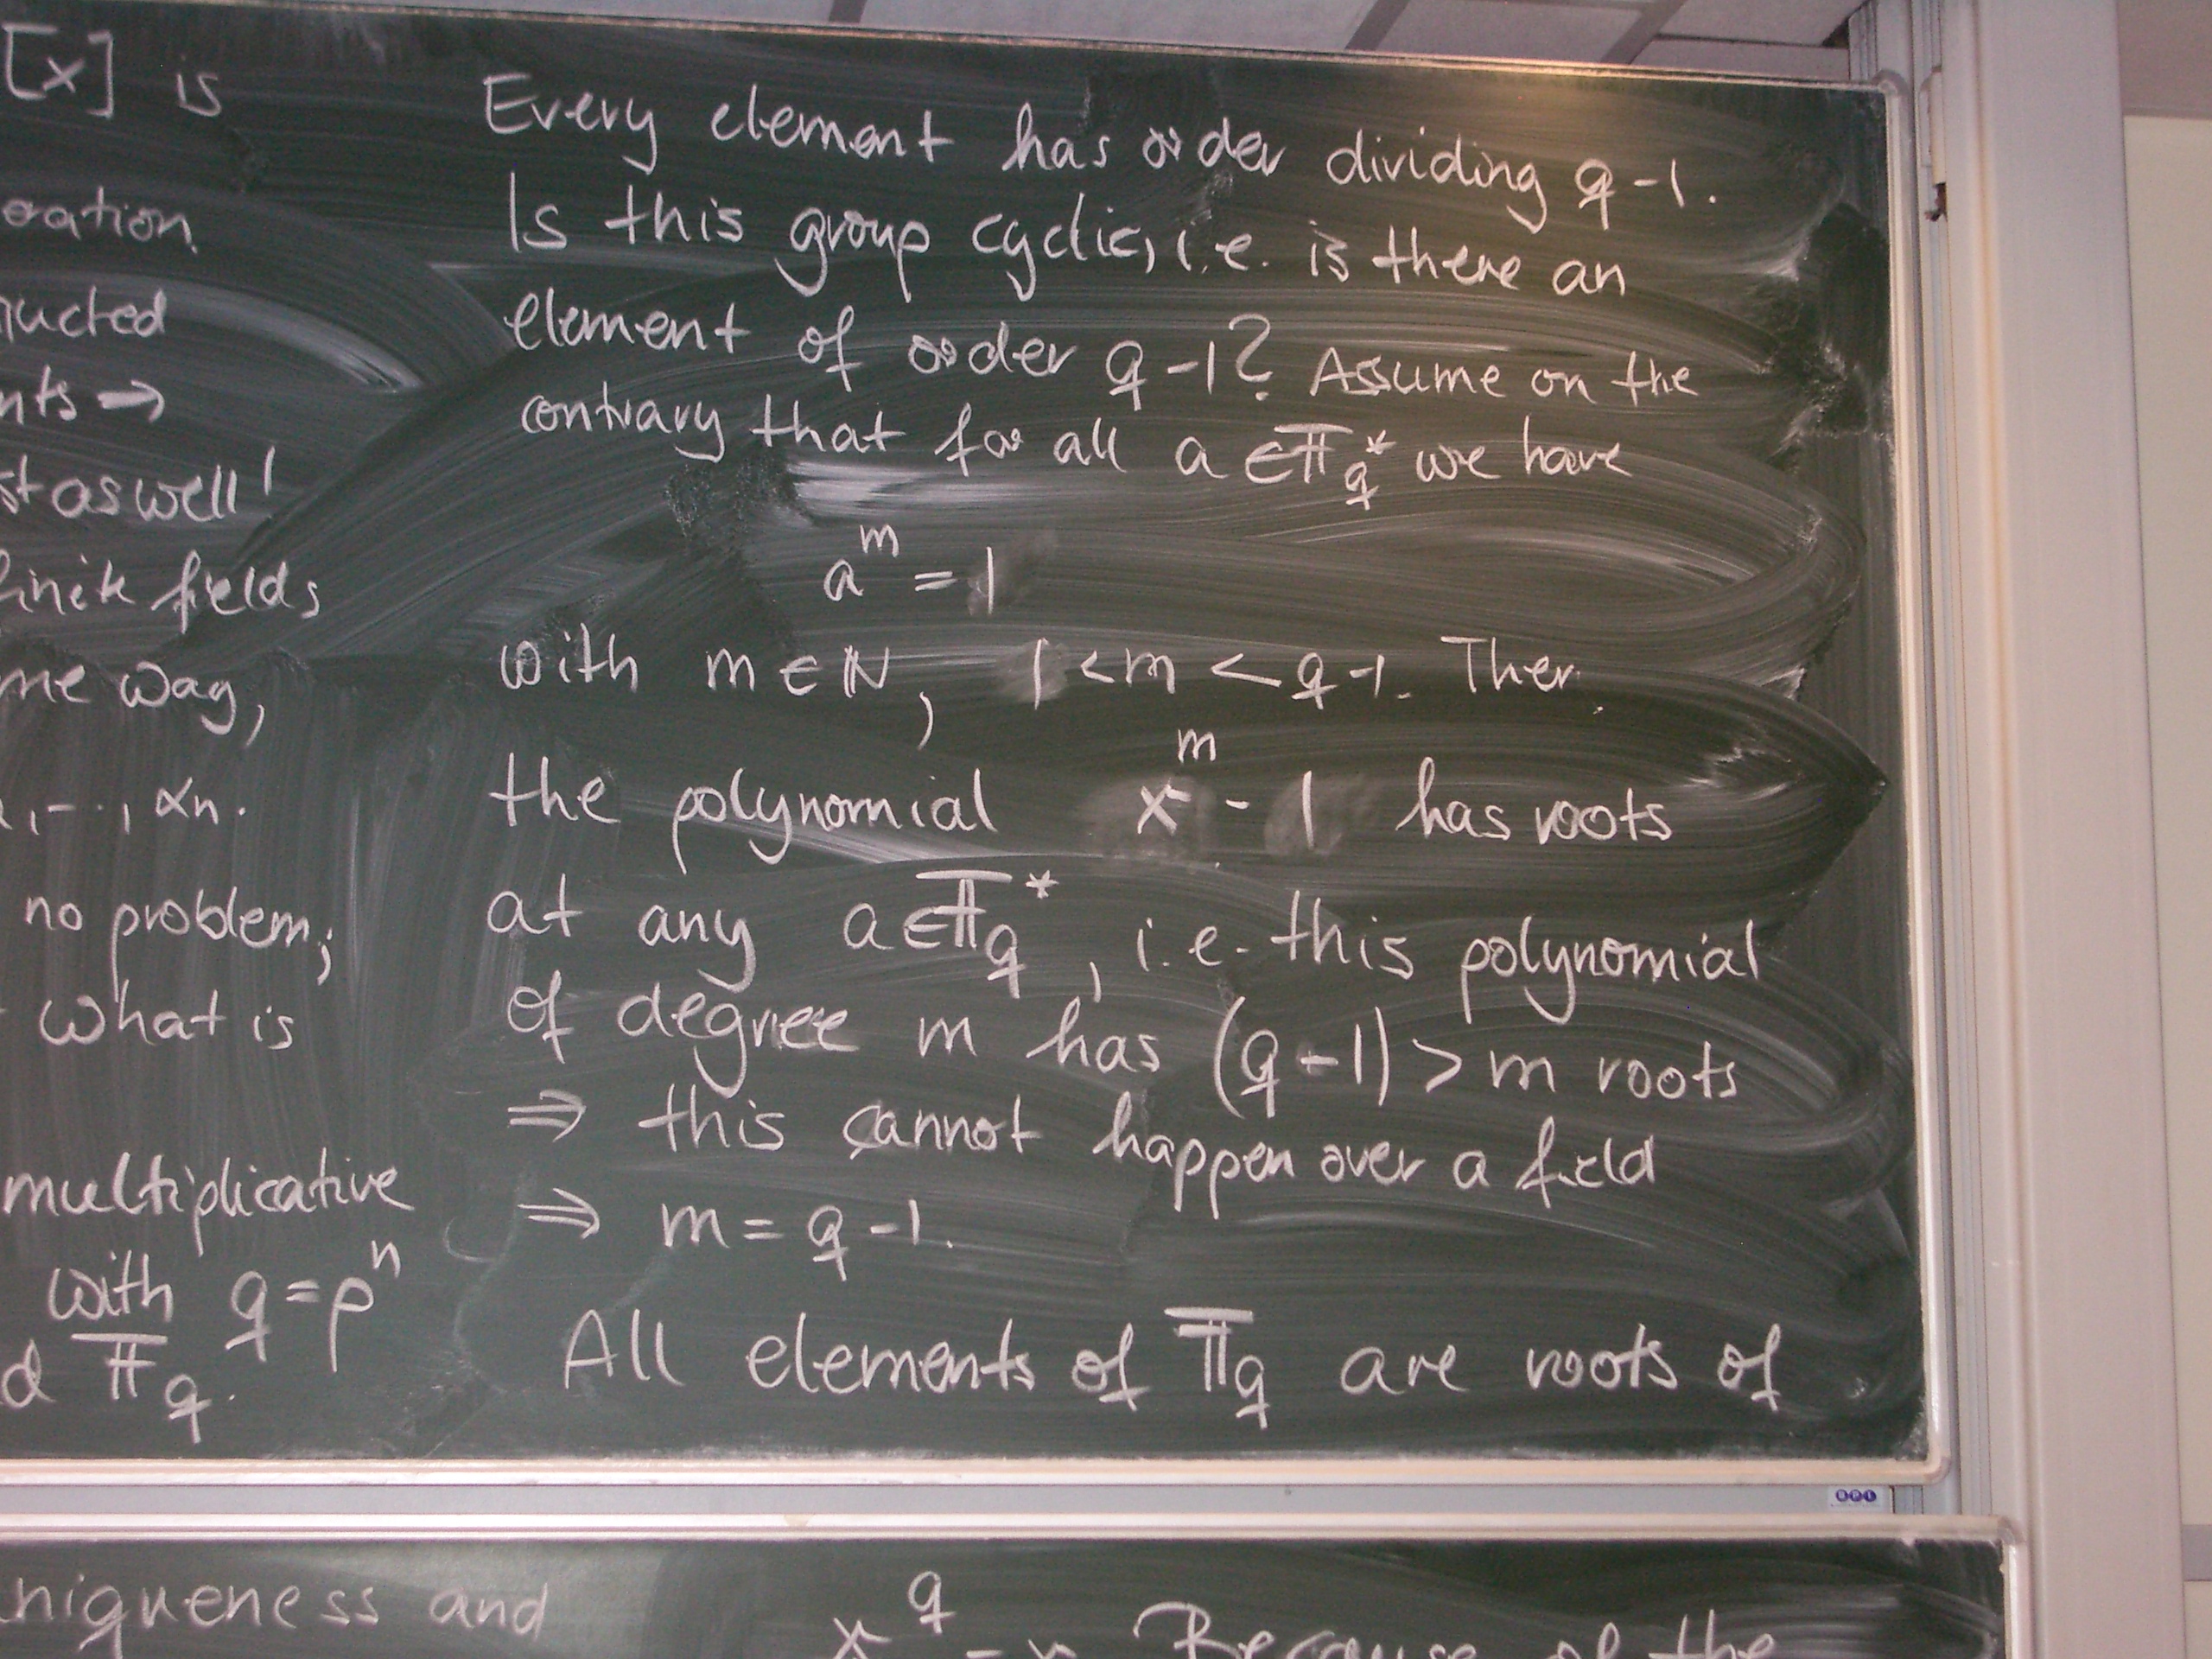 [x] is
oration.
ructed
nts ⇒
st as well!
finite fields
me way,
, ..., αn.
no problem;
what is
multiplicative
with q = p^n
d 𝔽_q.
Every element has order dividing q-1.
Is this group cyclic, i.e. is there an
element of order q-1? Assume on the
contrary that for all a ∈ 𝔽_q^* we have
a^m = 1
with m ∈ ℕ, 1 < m < q-1. Then
the polynomial x^m - 1 has roots
at any a ∈ 𝔽_q^*, i.e. this polynomial
of degree m has (q-1) > m roots
⇒ this cannot happen over a field
⇒ m = q-1.
All elements of 𝔽_q are roots of
niqueness and
x^q - x. Because of the